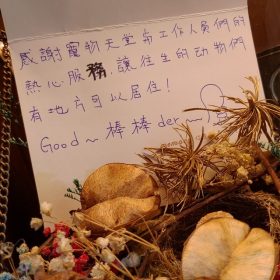 感謝寵物天堂與工作人員們的
熱心服務,讓往生的动物們
有地方可以居住!
Good~棒棒der~